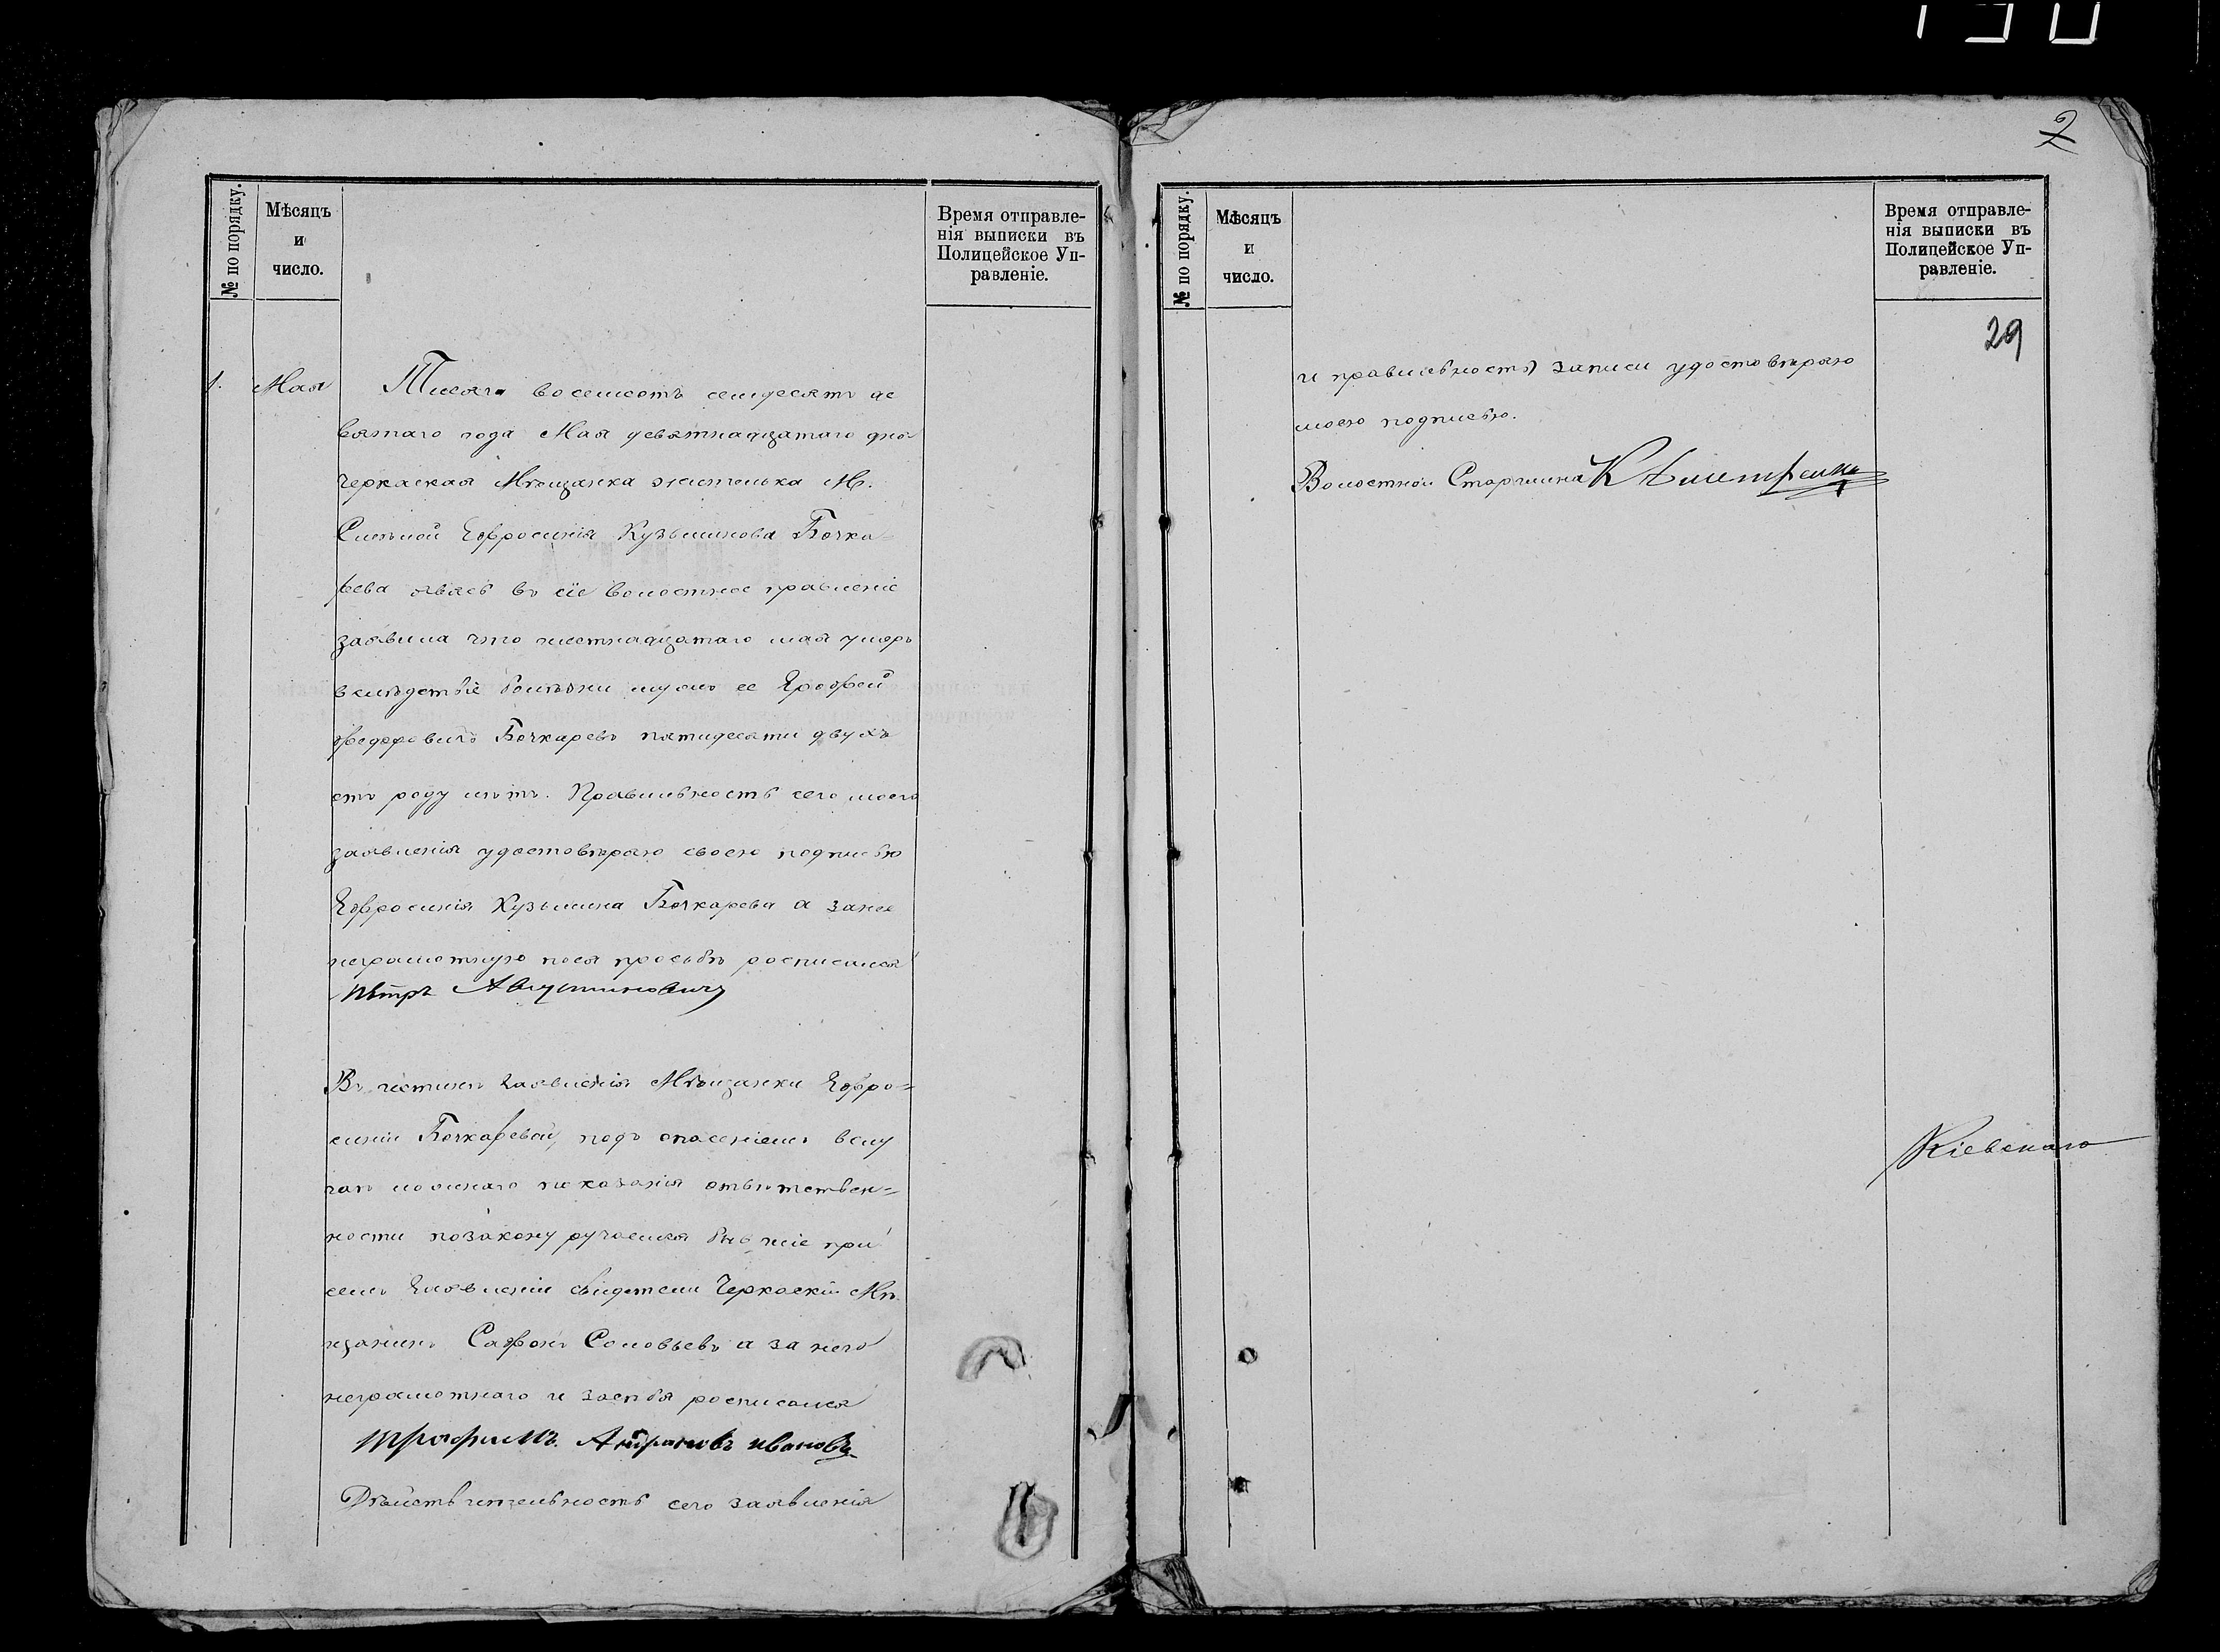 2
№ по порядку.
Мѣсяцъ
и
число.
Время отправле-
нія выписки въ
Полицейское Уп-
равленіе.
1. Мая
Тисяча восемсотъ семдесятъ де
вятаго года Мая девятнадцатаго дня
Черкаская Мѣщанка жителька М.
Смѣлой Ефросинія Кузьминова Бочка-
рева явясь въ сіе волостное правленіе
заявила что шестнадцатаго мая умеръ
вслѣдствіе болѣзни мужъ ее Ерофей
Федоровичъ Бочкаревъ пятидесяти двухъ
отъ роду лѣтъ. Правильность сего моего
заявленія удостовѣряю своею подписью
Ефросинія Кузьмина Бочкарева а занее
неграмотную поея прозьбѣ росписался
Петръ Августиновичъ
Въ истинѣ заявленія Мѣщанки Ефро=
синіи Бочкаревой, подъ опасеніемъ вслу
чаѣ ложнаго показанія отвѣтствен=
ности позакону ручаемся бывшіе при
семъ заявленіи свидетели Черкаскій Мѣ
щанинъ Сафонъ Соловьевъ а за него
неграмотнаго и засебя росписался
трофимъ. Ивановъ
Дѣйствительность сего заявленія
№ по порядку.
Мѣсяцъ
и
число.
Время отправле-
нія выписки въ
Полицейское Уп-
равленіе.
29
и правильность записи удостовѣряю
моею подписью.
Волостной Старшина К
Кіевскаго